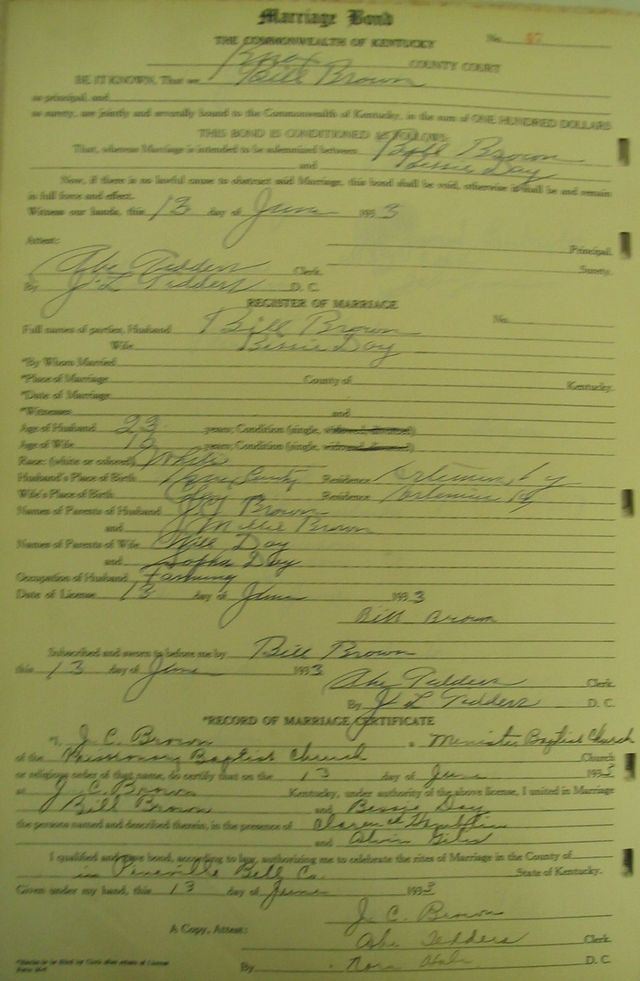 Marriage Bond
No. 47
THE COMMONWEALTH OF KENTUCKY
Knox COUNTY COURT
BE IT KNOWN, That we Bill Brown
as principal, and
as surety, are jointly and severally bound to the Commonwealth of Kentucky, in the sum of ONE HUNDRED DOLLARS
THIS BOND IS CONDITIONED AS FOLLOWS:
That, whereas Marriage is intended to be solemnized between Bill Brown
and Bessie Day
Now, if there is no lawful cause to obstruct said Marriage, this bond shall be void, otherwise it shall be and remain
in full force and effect.
Witness our hands, this 13 day of June 1933
Attest: Principal.
Abe Tedders Clerk Surety.
By J. L. Tedders D. C.
REGISTER OF MARRIAGE
No.
Full names of parties, Husband Bill Brown
Wife Bessie Day
*By Whom Married
*Place of Marriage County of Kentucky.
*Date of Marriage
*Witnesses and
Age of Husband 23 years; Condition (single, widowed, divorced)
Age of Wife years; Condition (single, widowed, divorced)
Race: (white or colored) White
Husband's Place of Birth Knox County Residence Artemus, Ky
Wife's Place of Birth Residence Artemus Ky
Names of Parents of Husband Brown
and Millie Brown
Names of Parents of Wife Will Day
and Sopha Day
Occupation of Husband Farming
Date of License 13 day of June 1933
Bill Brown
Subscribed and sworn to before me by Bill Brown
this 13 day of June 1933
Abe Tedders Clerk
By J. L. Tedders D. C.
*RECORD OF MARRIAGE CERTIFICATE
I, J. C. Brown a Minister Baptist Church
of the Missionary Baptist Church Church
or religious order of that name, do certify that on the 13 day of June 1933
at J. C. Brown Kentucky, under authority of the above license, I united in Marriage
Bill Brown and Bessie Day
the persons named and described therein, in the presence of Clarence
and Alvin
I qualified and gave bond, according to law, authorizing me to celebrate the rites of Marriage in the County of
in Pineville Bell Co. State of Kentucky.
Given under my hand, this 13 day of June 1933
J. C. Brown
A Copy, Attest: Abe Tedders Clerk
By Nora D. C.